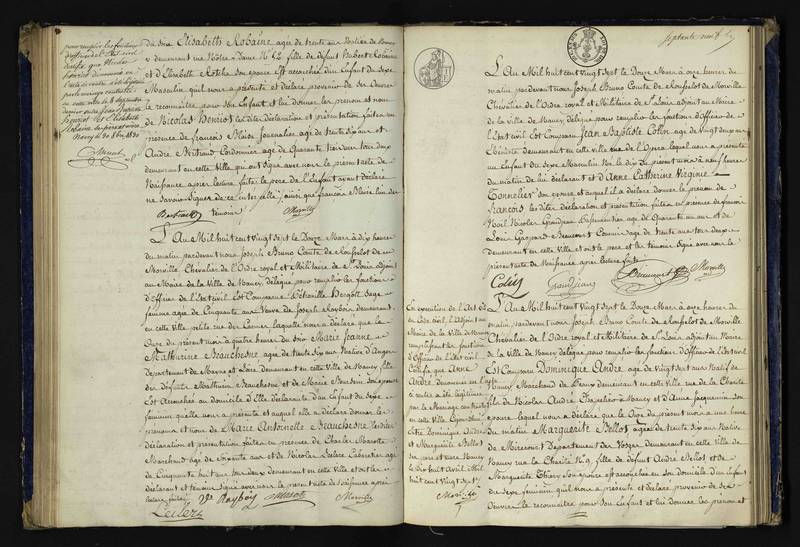 pour remplir les fonctions
d'officier de l'Etat civil
certifie que Nicolas
henriot dénommé en
par le mariage contracté
en cette ville le
dernier entre Jean
henriot et Elisabeth
Robaine
Nancy le 30 8bre 1830
du soir Elisabeth Robaine agée de trente ans Native de Nancy
y demeurant rue Nôtre Dame N° fille de défunt hubert Robaine
et d'Elisabeth son épouse est accouchée d'un Enfant du Sexe
Masculin qu'il nous a présenté et déclaré provenir de ses œuvres
le reconnaitre pour son Enfant et lui donner les prenom et nom
de Nicolas henriot les dites Déclaration et présentation faites en
présence de françois Journalier agé de trente Six ans et
André Bertrand Cordonnier agé de Quarante trois ans tous deux
demeurant en cette Ville qui ont Signé avec nous le présent acte de
Naissance après lecture faite le pere de l'Enfant ayant déclaré
ne Savoir Signer de ce interpellé ainsi que françois
témoin
L'An Mil huit cent Vingt Sept le Douze Mars à dix heures
du matin pardevant nous Joseph Bruno Comte de Rouffelot de
Morville Chevalier de l'Ordre royal et Militaire de St Louis Adjoint
au Maire de la Ville de Nancy, délégué pour remplir les fonctions
d'Officier de l'Etat civil Est Comparue Pétronille Bergott Sage
femme agée de Cinquante ans Veuve de Joseph Raybois demeurant
en cette Ville petite rue des Carmes laquelle nous a déclaré que le
Onze du présent mois à quatre heures du soir Marie Jeanne
Mathurine Beauchesne agée de trente Six ans Native d'Angers
département de Mayne et Loire demeurant en cette Ville de Nancy fille
des défunts Mathurin Beauchesne et de Marie son épouse
Est Accouchée au domicile d'Elle déclarante d'un Enfant du Sexe
féminin qu'elle nous a présenté et auquel elle a déclaré donner les
prenoms et nom de Marie Antoinette Beauchesne les dites
déclaration et présentation faites en présence de Charles
Marchand agé de Soixante ans et de Nicolas Leclerc Cabaretier agé
de Cinquante huit ans tous deux demeurant en cette Ville et ont les
déclarant et témoins Signé avec nous le présent acte de Naissance après
lecture faite
Ve Raybois
Leclerc
Morville
septante neuf
L'An Mil huit cent Vingt Sept le Douze Mars à onze heures du
matin pardevant nous Joseph Bruno Comte de Rouffelot de Morville
Chevalier de l'Ordre royal et Militaire de St Louis adjoint au Maire
de la Ville de Nancy délégué pour remplir les fonctions d'Officier de
l'Etat civil Est Comparu Jean Baptiste Colin agé de Vingt deux ans
Ebéniste demeurant en cette Ville rue de l'Opera lequel nous a présenté
un Enfant du Sexe Masculin Né le dix du présent mois à neuf heures
du matin de lui déclarant et d'Anne Catherine Virginie
Tonnelier son épouse et auquel il a déclaré donner le prenom de
françois les dites déclaration et présentation faites en présence de
Noël Nicolas Grandjean agé de Quarante un ans et de
Louis Gaspard Beaucourt Commis agé de trente ans tous deux
demeurant en cette Ville et ont le pere et les témoins Signé avec nous le
présent acte de Naissance après lecture faite
Colin
Grandjean
Beaucourt
Morville
En exécution de l'Art
du Code Civil, l'Adjoint au
Maire de la Ville de Nancy
remplissant les fonctions
d'Officier de l'Etat civil
Certifie que Anne
André dénommée en l'acte
ci contre a été légitimée
par le Mariage contracté
en cette Ville
entre Dominique André
et Marguerite Bellot
ses pere et mere Nancy
le Dix huit Avril Mil
huit cent Vingt Sept
Morville
L'An Mil huit cent Vingt Sept le Douze Mars à onze heures du
matin, pardevant nous Joseph Bruno Comte de Rouffelot de Morville
Chevalier de l'Ordre royal et Militaire de St Louis adjoint au Maire
de la Ville de Nancy délégué pour remplir les fonctions d'Officier de l'Etat civil
Est Comparu Dominique André agé de Vingt Sept ans Natif de
Nancy Marchand de demeurant en cette Ville rue de la Charité
fils de Nicolas André Chapelier à Nancy et d'Anne Jacquemin son
épouse lequel nous a déclaré que le Onze du présent mois à une heure
du matin Marguerite Bellot agée de trente Six ans Native
de Mirecourt Département des Vosges demeurant en cette Ville de
Nancy rue la Charité N° 9 fille de défunt André Bellot et de
Marguerite Thiery son épouse est accouchée en son domicile d'un Enfant
du Sexe féminin qu'il nous a présenté et déclaré provenir de ses
Œuvres le reconnaitre pour son Enfant et lui donner les prenom et